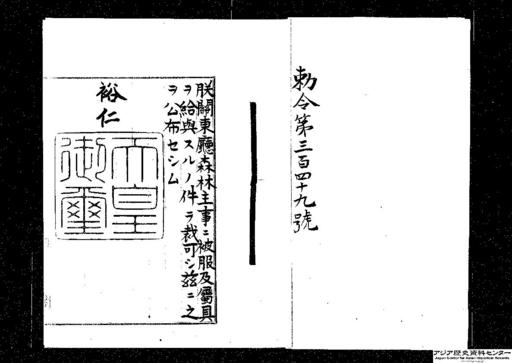 勅令第三百四十九號
朕關東廳森林主事ニ被服及屬具
ヲ給與スルノ件ヲ裁可シ茲ニ之
ヲ公布セシム
裕仁
天皇
御璽
アジア歴史資料センター
Japan Center for Asian Historical Records